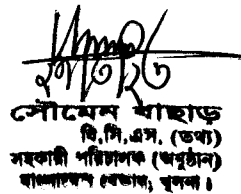 সৌমেন বাছাড়
বি,সি,এস, (তথ্য)
সহকারী পরিচালক (অনুষ্ঠান)
বাংলাদেশ বেতার, খুলনা।